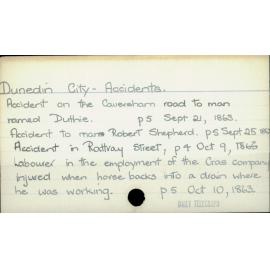 Dunedin City - Accidents.
Accident on the Caversham road to man
named Duthie. p5 Sept 21, 1863.
Accident to man Robert Shepherd. p5 Sept 25
Accident in Rattray Street, p4 Oct 9, 1863
Labourer in the employment of the Gas company
injured when horse backs into a drain where
he was working. p5 Oct 10, 1863
DAILY TELEGRAPH